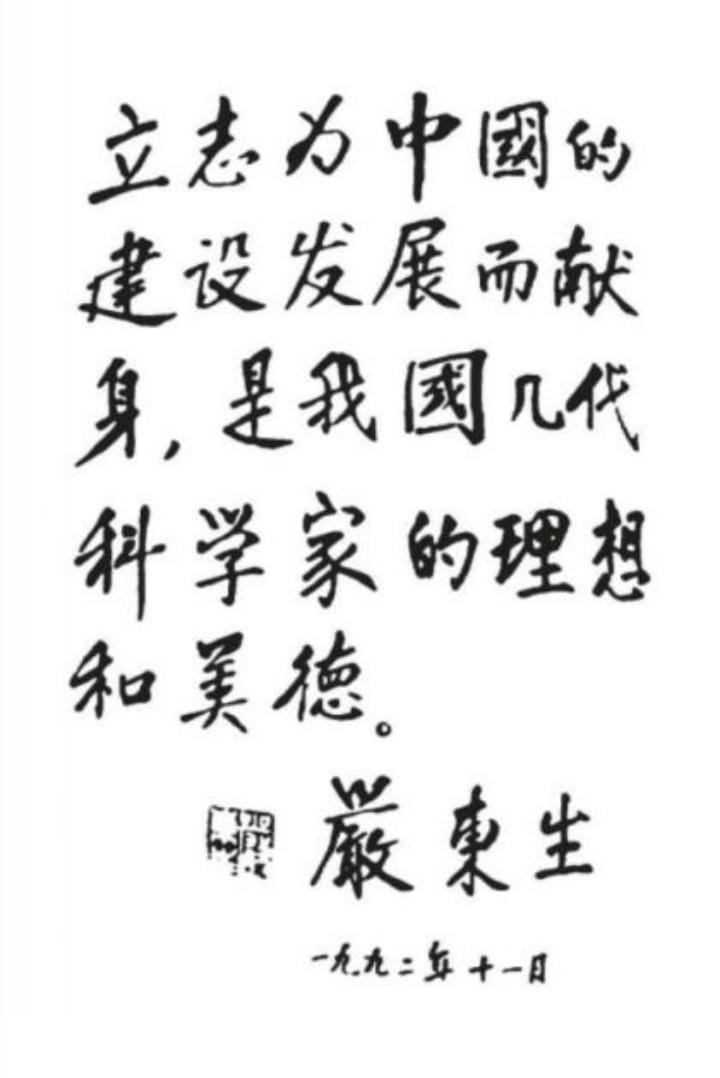 立志为中國的
建设发展而献
身,是我國几代
科学家的理想
和美德。
嚴東生
一九九二年十一月